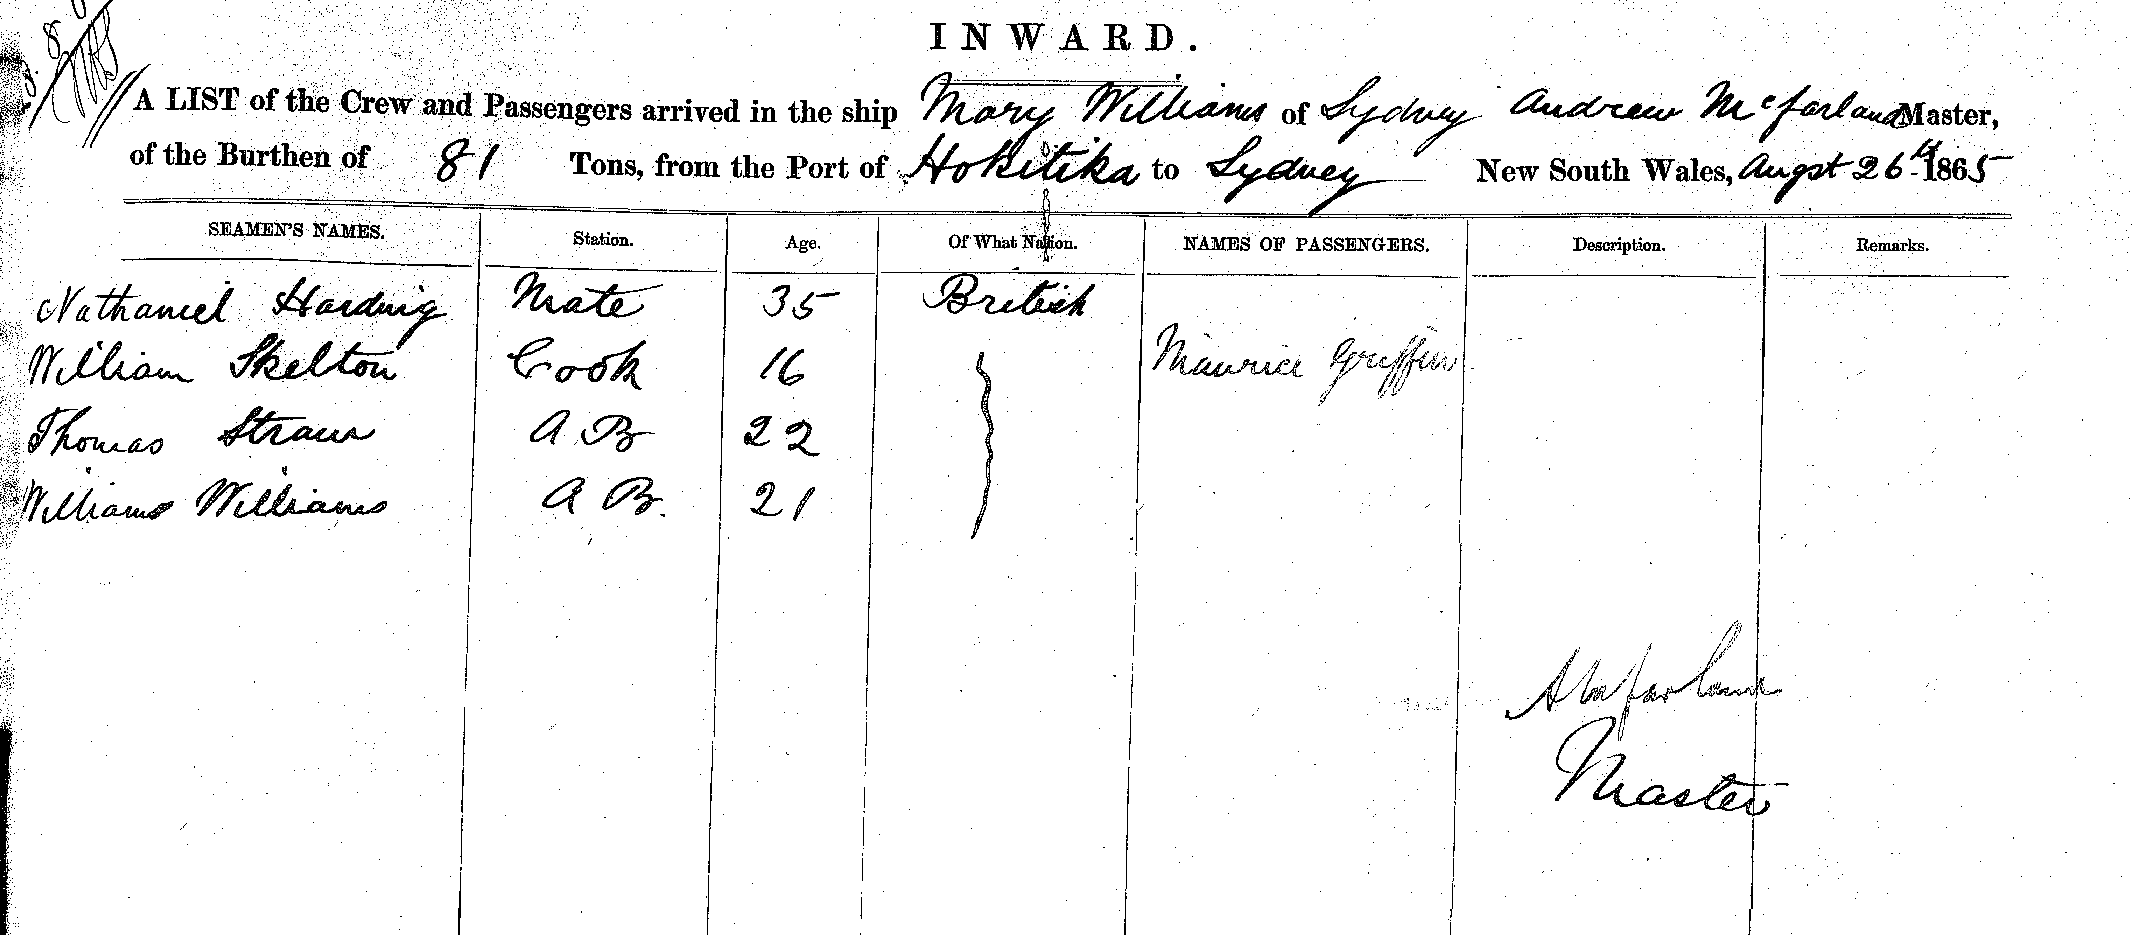 INWARD.
A LIST of the Crew and Passengers arrived in the ship Mary Williams of Sydney Andrew McFarland Master,
of the Burthen of 81 Tons, from the Port of Hokitika to Sydney New South Wales, Augst 26th 1865
SEAMEN'S NAMES. Station. Age. Of What Nation. NAMES OF PASSENGERS. Description. Remarks.
Nathaniel Harding Mate 35 British
William Skelton Cook 16 Maurice Griffin
Thomas Straus A B 22
Williams Williams A B. 21
A McFarland
Master